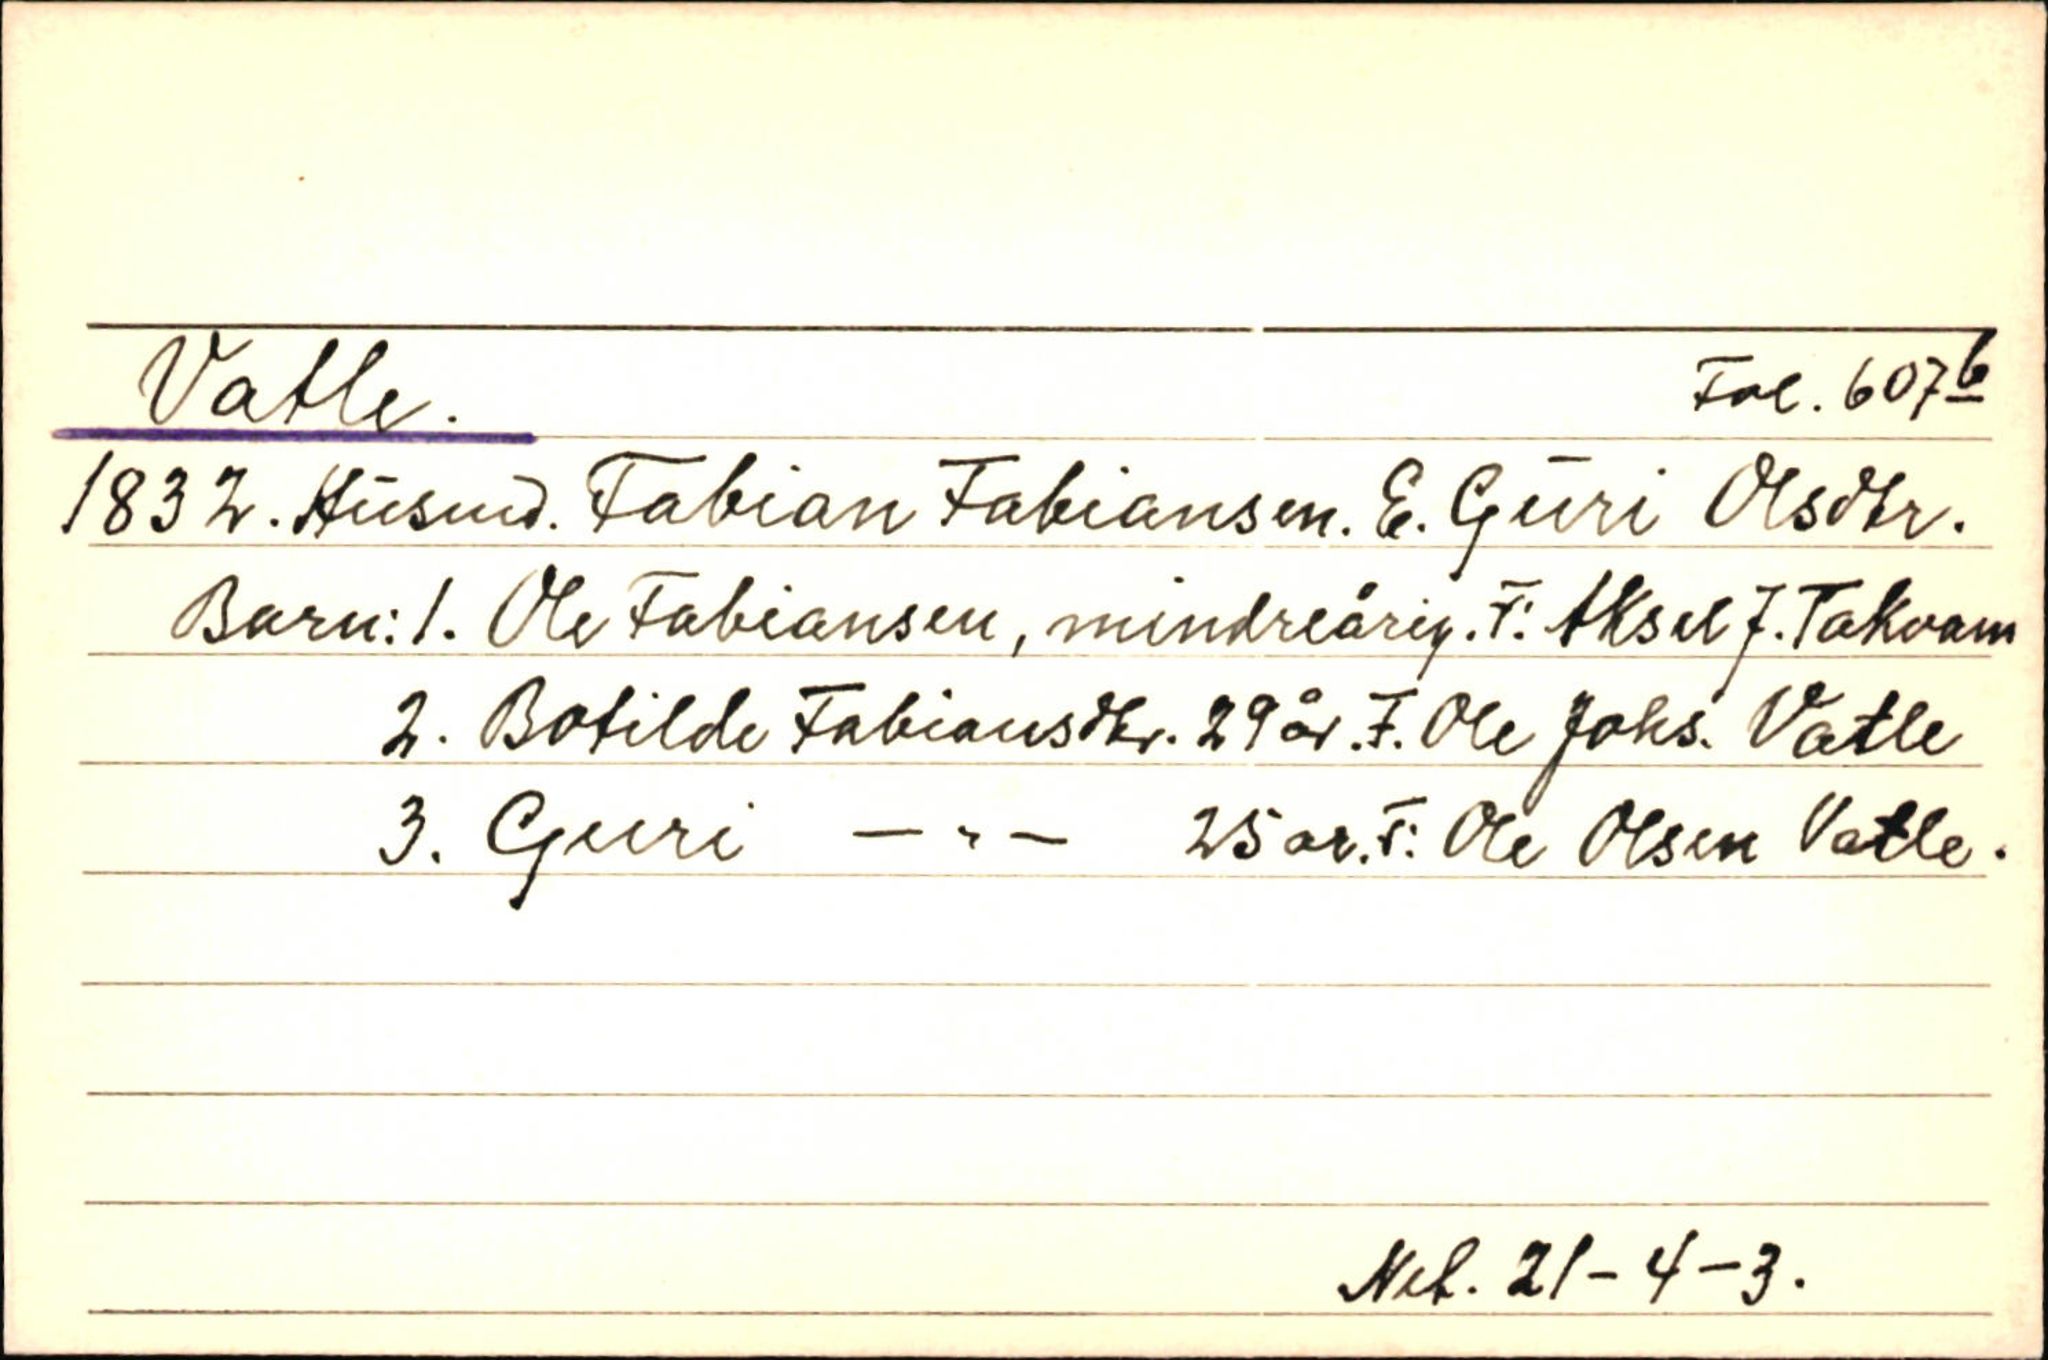 Vatle. Fol. 607b
1832. Husmd. Fabian Fabiansen. E. Guri Olsdtr.
Barn: 1. Ole Fabiansen, mindreårig. F: Aksel J. Takvam
2. Botilde Fabiansdtr. 29 år. F. Ole Johs. Vatle
3. Guri — " — 25 år. F: Ole Olsen Vatle.
Net. 21-4-3.